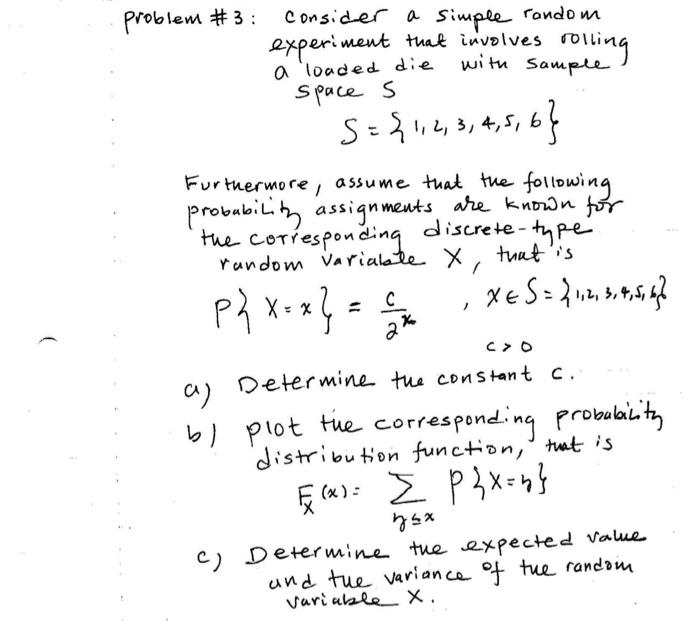 Problem #3: Consider a simple random
experiment that involves rolling
a loaded die with sample
space S
S = {1, 2, 3, 4, 5, 6}
Furthermore, assume that the following
probability assignments are known for
the corresponding discrete-type
random variable X, that is
P{X = x} = c/2^x , x ∈ S = {1, 2, 3, 4, 5, 6}
c > 0
a) Determine the constant c.
b) plot the corresponding probability
distribution function, that is
F_X(x) = Σ_{η ≤ x} P{X = η}
c) Determine the expected value
and the variance of the random
variable X.